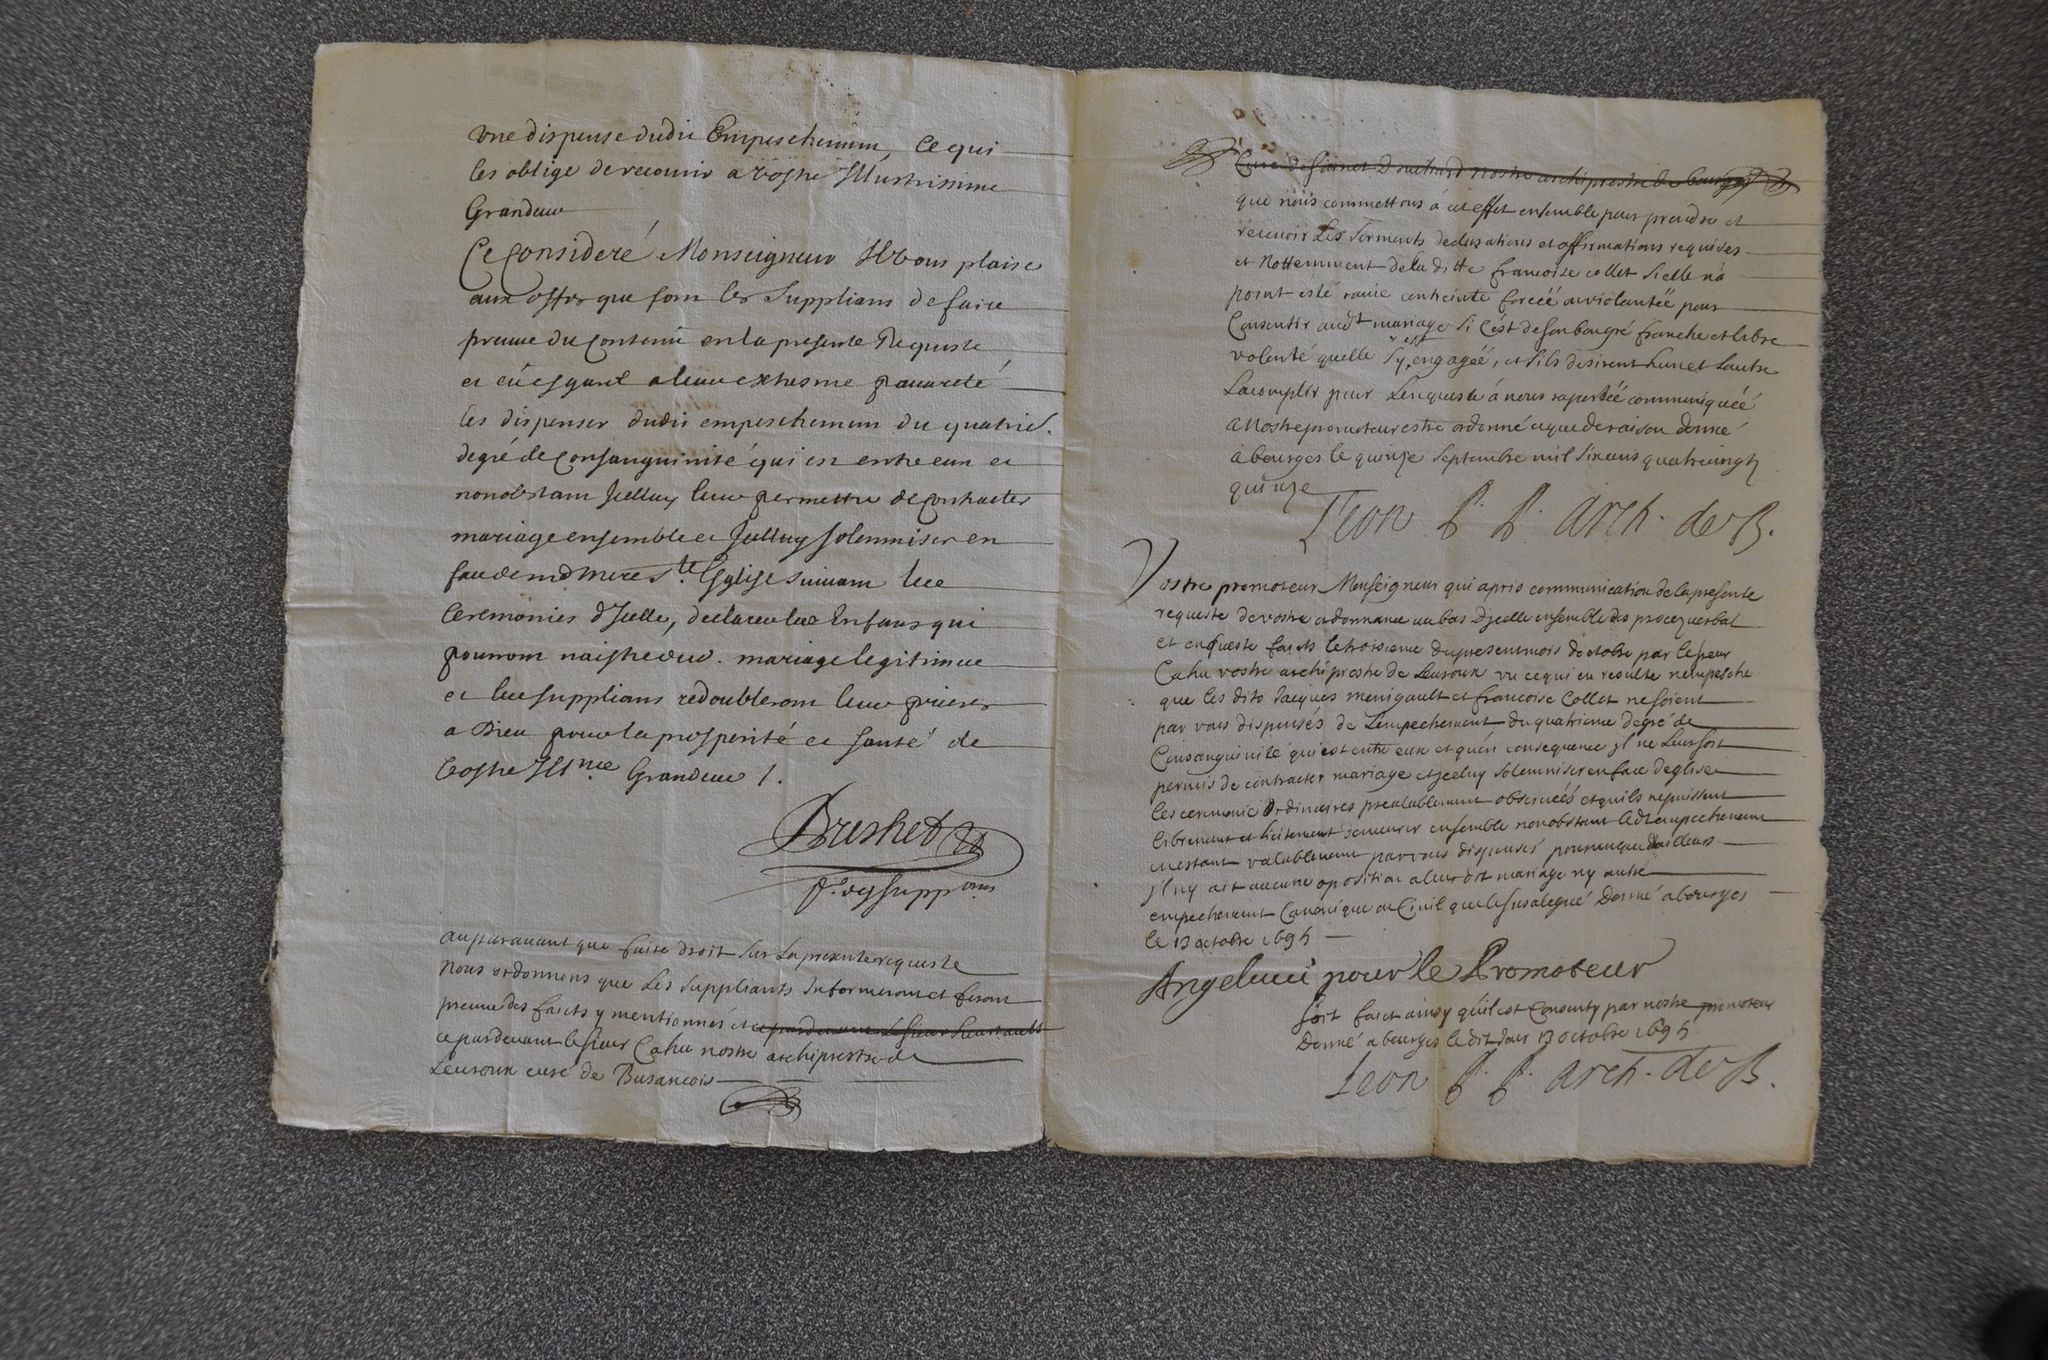 une dispense dudit Empeschement, Ce qui
les oblige de recourir a vostre Illustrissime
Grandeur
Ce Consideré Monseigneur Il vous plaise
aux offres que font les Supplians de faire
preuve du Contenu en la presente Requeste
et eu esgard a leur extresme pauvreté
les dispenser dudit empeschement du quatrie.
degré de Consanguinité qui est entre eux et
nonobstant Icelluy leur permettre de Contracter
mariage ensemble et Icelluy solemniser en
face de nre mere Ste Esglise suivant les
Ceremonies d'Icelle, declarer les Enfans qui
pourront naistre dud. mariage legitimes
et les supplians redoubleront leurs prieres
a Dieu pour la prosperité et santé de
vostre Illme Grandeur /.
pr. les suppans
auparavant que faire droit sur La presente requeste
nous ordonnons que Les Suppliants Informeront et feront
preuve des faicts y mentionnés et ce pardevant Le sieur
ce pardevant le sieur Cahu nostre archiprestre de
Leuroux curé de Busancois
Curé de nostre archiprestre de bourges
que nous commettons á cet effet ensemble pour prendre et
recevoir Les Serments declarations et affirmations requises
et Nottemment de la ditte francoise collet Si elle na
point esté ravie contreinte forcéé ou violentéé pour
Consentir audt mariage Si C'est de son bon gré franche et libre
volonté quelle s'y est engagéé, et s'ils desirent l'un et Lautre
Lacomplir pour Lenqueste á nous raportéé communiquéé
a Nostre promoteur estre ordonné ce que de raison donné
á bourges le quinze Septembre mil Six cens quatre vingt
quinze
Leon P. P. arch. de B.
Vostre promoteur Monseigneur qui apres communication de la presente
requeste de vostre ordonnance au bas d'jcelle ensemble des procez verbal
et enqueste faicts le troisieme du present mois doctobre par le sieur
Cahu vostre archiprestre de Leuroux vu ce qui en resulte nempesche
que les dits Jacques menigault et francoise Collet ne soient
par vous dispensés de L'empechement du quatrieme degré de
Consanguinité qui est entre eux et quen consequence jl ne Leur soit
permis de contracter mariage et jceluy solemniser en face deglise
les ceremonie Ordinaires prealablement observéés et quils ne puissent
librement et licitement demeurer ensemble nonobstant ledt empechement
en estant valablement par vous dispensés pourveu que dailleurs
jl ny ait aucune oposition a leur dit mariage ny autre
empechement Canonique ou Civil que le susalegué Donné a bourges
le 13 octobre 1695
Angelucci pour le Promoteur
soit faict ainsy qu'il est Consenty par nostre promoteur
Donné a bourges le dit jour 13 octobre 1695
Leon P. P. arch. de B.